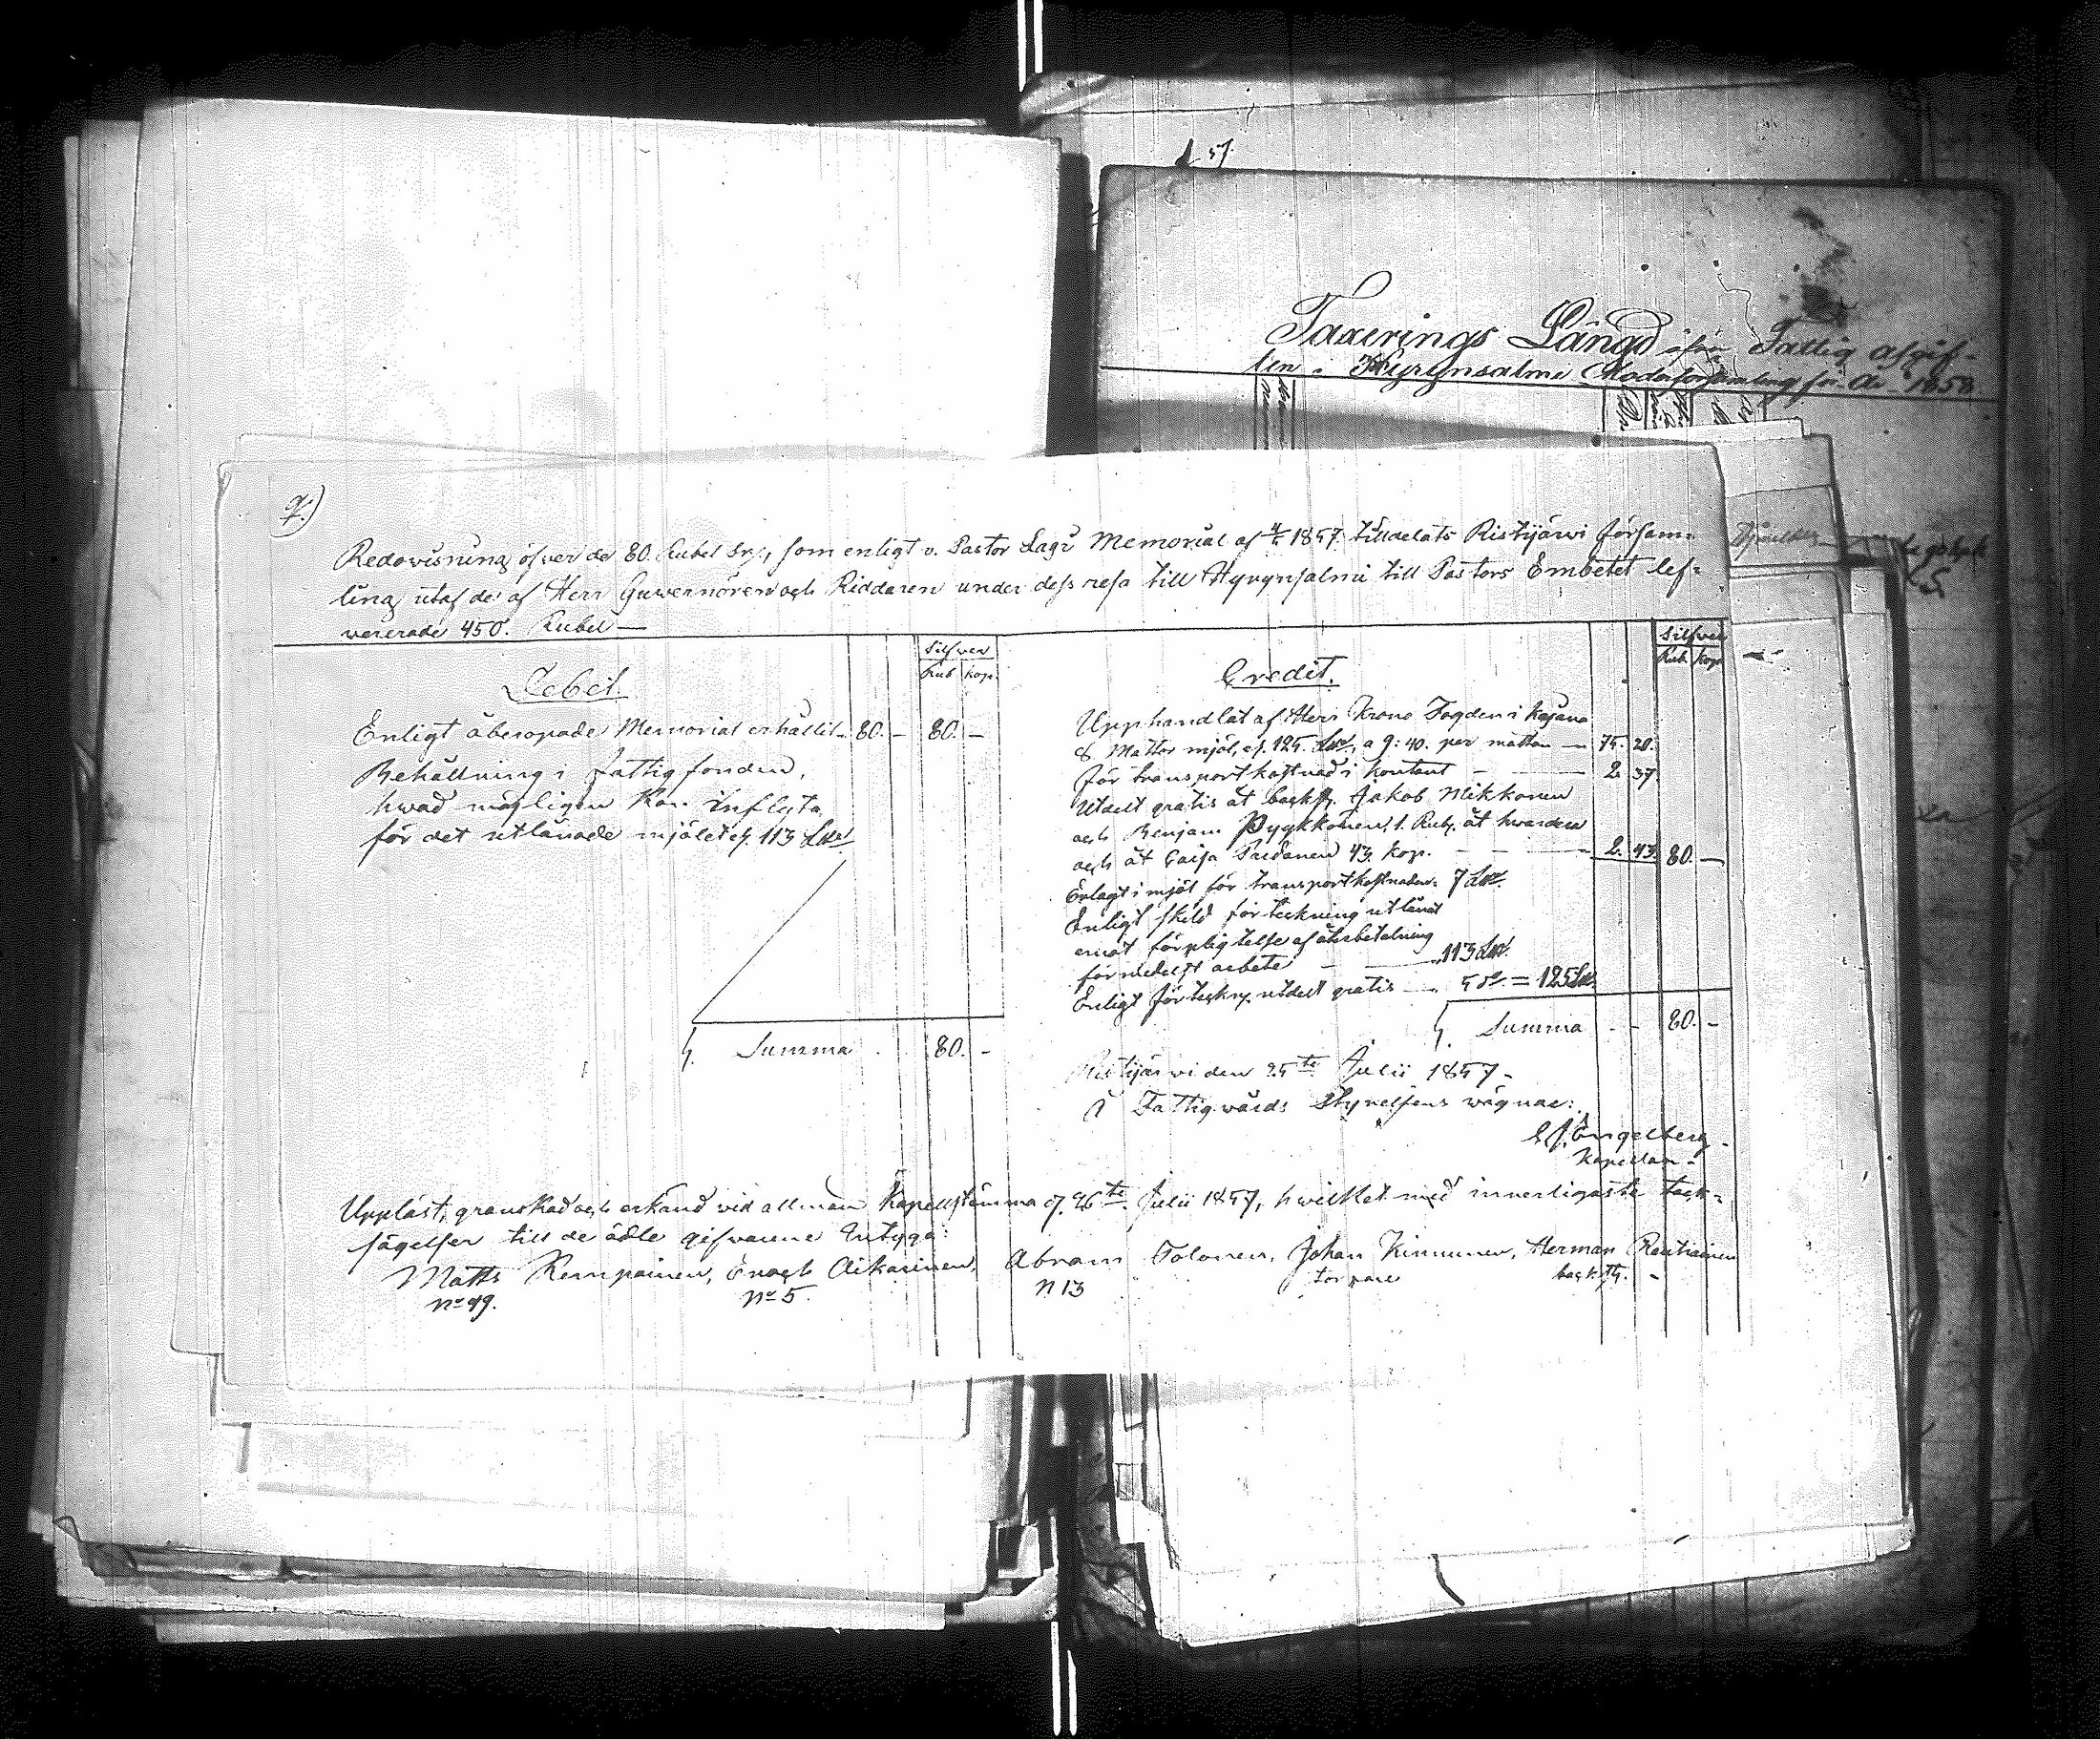 57.
Taxerings Längd öfver Fattig afgif-
ten i Hyrynsalmi Moderförsamling för år 1858
q.)
Redovisning öfver de 80. Rubel Sr, som enligt v. Pastor Lagi Memorial af 1857 tilldelats Ristijärvi Försam=
ling utaf de af Herr Guvernören och Riddaren under dess resa till Hyrynsalmi till Pastors Embetet lef=
vererade 450. Rubel —
Silfver
Rub kop.
Debet.
Enligt åberopade Memorial erhållit - 80. - 80. -
Behållning i Fattigfonden,
hvad möjligen kan inflyta
för det utlånade mjölet ef. 113 L℔
Summa 80. -
Silfver
Rub. Kop.
Credit.
Upphandlat af Herr Krono Fogden i Kajana
8 Mattor mjöl, ef. 125. L℔, a 9: 40. per mattan — 75. 20.
för transportkostnad i kontant — 2. 37
Utdelt gratis åt backst. Jakob Mikkonen
och Benjam Pyykkönen, 1. Rub. åt hvardera
och åt Caisa Pardanen 43. kop. — 2. 43. 80. —
Erlagt i mjöl för transportkostnaden. 7 L℔.
Enligt skild förteckning utlånat
emot förpligtelse af återbetalning
förmedelst arbete — 113 L℔.
Enligt förteckn. utdelt gratis — 5 d:o = 125 L℔
Summa - - 80. -
Ristijärvi den 25te Julii 1857 -
å Fattigvårds Styrelsens vägnar:
Engelberg.
Kapellan.
Uppläst, granskad och erkänd vid allmän Kapellstämma d. 26te Julii 1857, hvilket med innerligaste tack=
sägelser till de ädle gifvarne Intyga:
Matts Kemppainen, Enoch Oikarinen, Abram Tolonen, Johan Kinnunen, Herman Rautiainen
No 49. No 5. N 13 torpare backst. -